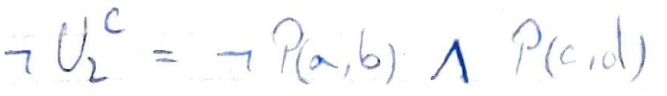 ¬ U₂ᶜ = ¬ P(a,b) ∧ P(c,d)